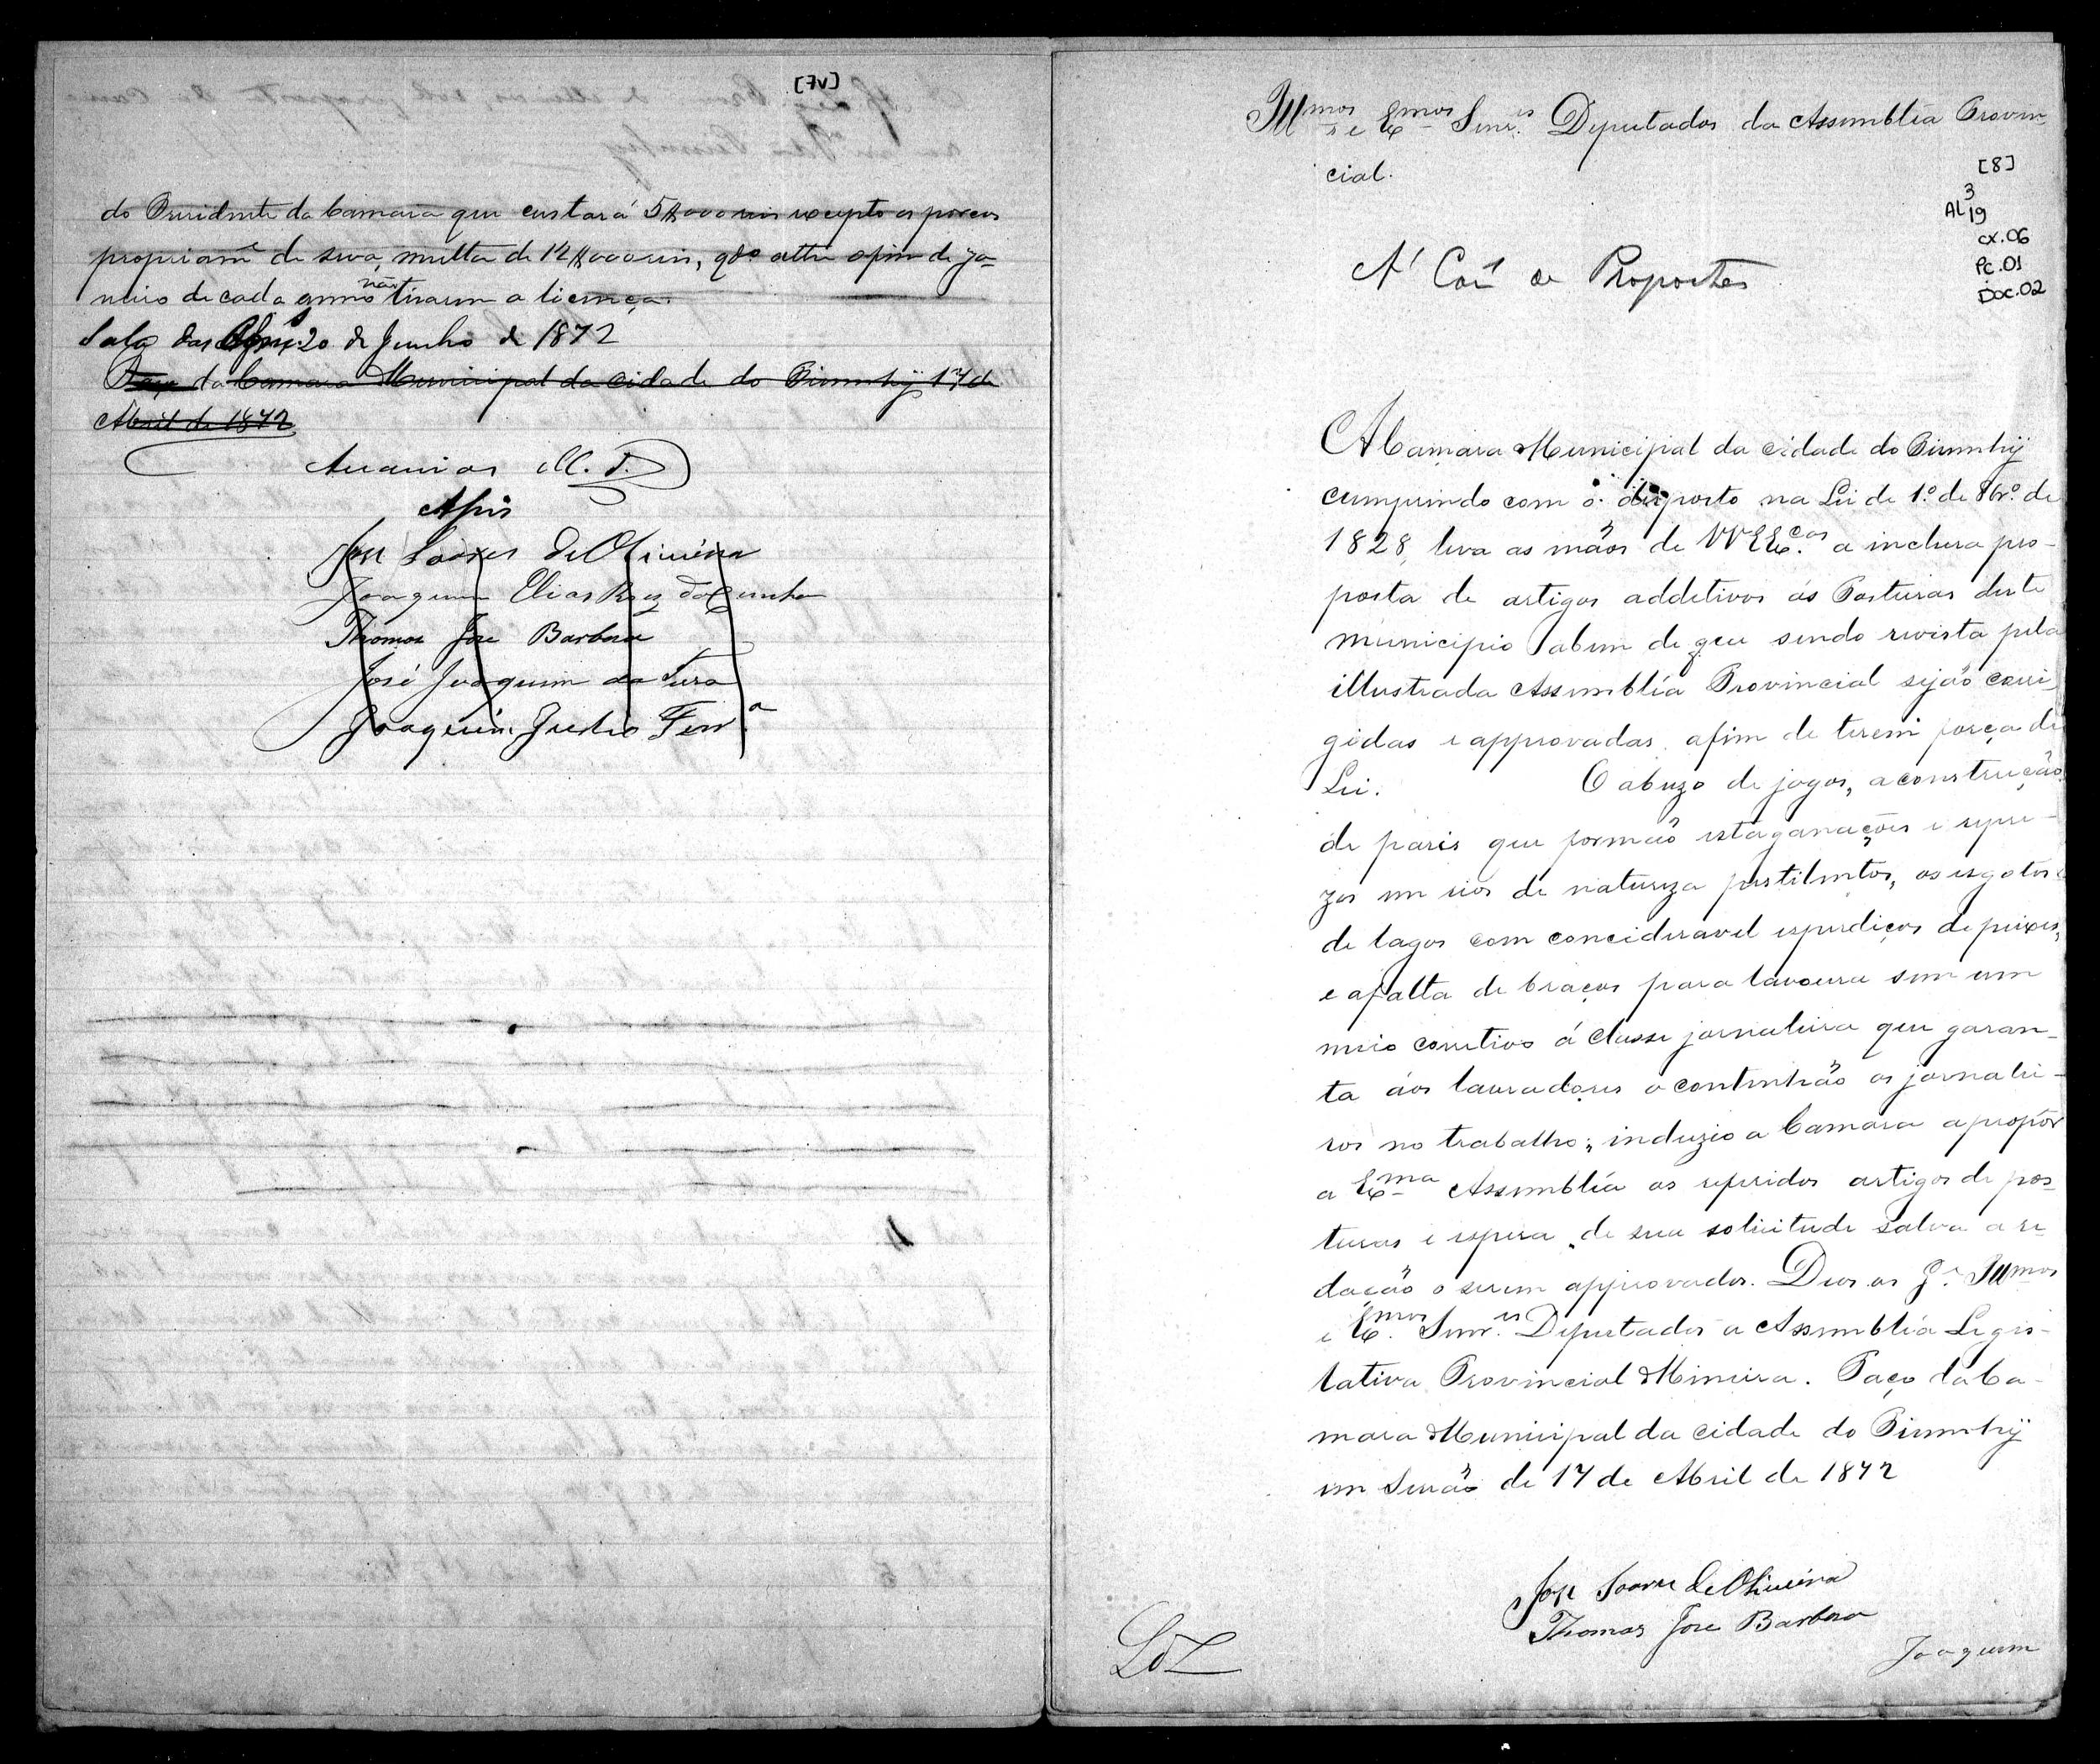 [7v]
do Presidente da Camara que custará 5$000 reis excepto os porcos
propriam.e de seva, multa de 12$000 reis, qdo athe o fim de ja-
neiro de cada anno não tirarem a licença.
Sala das 20 de Junho de 1872
Paço da Camara Municipal da Cidade do Piumhÿ 17 de
Abril de 1872
M. J.
Assis
José Soares de Oliveira
Joaquim Elias Roiz da Cunha
Thomas Jose Barbosa
José Joaquim da
Joaquim Pedro Ferr.a
Illmos e Exmos Senr.es Deputados da Assembléa Provin-
cial.
[8]
AL 3/19
cx.06
Pc.01
Doc.02
A' Com de Propostas
A Camara Municipal da cidade do Piumhÿ
cumprindo com o disposto na Lei de 1.º de 8br.º de
1828, leva as mãos de VVEEx.cas a inclusa pro-
posta de artigos addetivos ás Posturas deste
municipio abem de que sendo revista pela
illustrada Assembléa Provincial sejão corri-
gidas e approvadas, afim de terem força de
Lei. O abuzo de jogos, a construcção
de paris que formão estaganações e repre-
zas em rios de natureza pestilentos, os esgotos
de lagos com concideravel esperdiços de peixes,
e a falta de braços para lavoura sem um
meio corretivo á classe jornaleira que garan-
ta áos lavradores o contenhão os jornalei-
ros no trabalho; induzio a Camara a propôr
a Exma Assembléa os referidos artigos de pos-
turas e espera de sua solicitude salva a re-
dacção o serem approvados. Deos os G.e Illmos
e Ex.mos Senr.es Deputados a Assembléa Legis-
lativa Provincial Mineira. Paço da Ca-
mara Municipal da cidade do Piumhÿ
em Seção de 17 de Abril de 1872
José Soares de Oliveira
Thomas Jose Barbosa
Joaquim